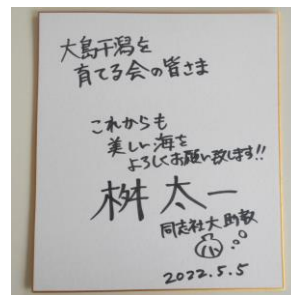 大島干潟を
育てる会の皆さま
これからも
美しい海を
よろしくお願い致します!!
桝太一
同志社大助教
2022.5.5